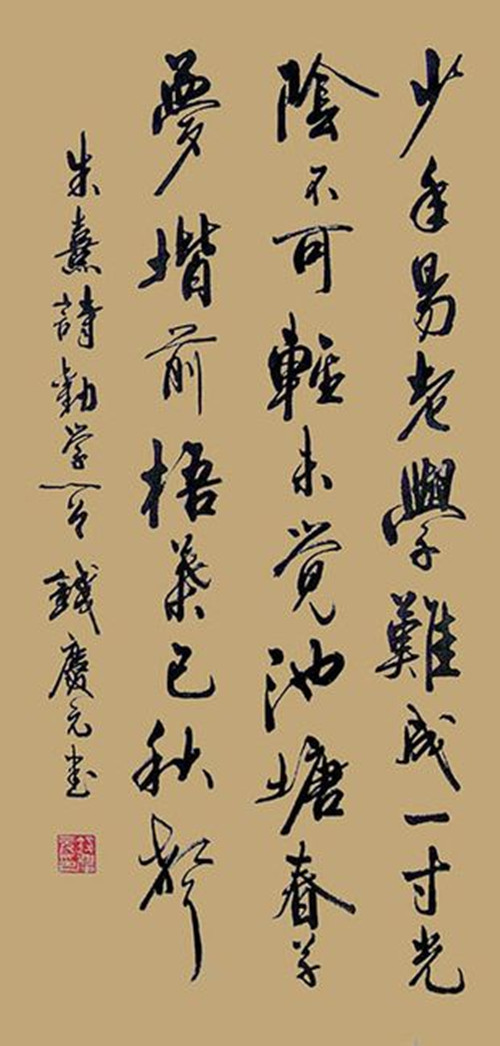 少年易老學難成一寸光
陰不可輕未觉池塘春草
夢堦前梧葉已秋聲
朱熹詩勸学一首 錢慶元書